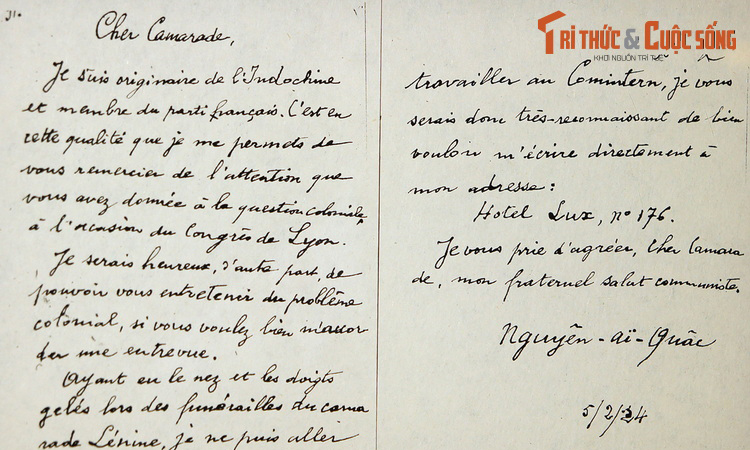 31.
Cher Camarade,
Je suis originaire de l'Indochine
et membre du parti français. C'est en
cette qualité que je me permets de
vous remercier de l'attention que
vous avez donnée à la question coloniale,
à l'occasion du Congrès de Lyon.
Je serais heureux, d'autre part, de
pouvoir vous entretenir du problème
colonial, si vous voulez bien m'accor
der une entrevue.
Ayant eu le nez et les doigts
gelés lors des funérailles du cama
rade Lénine, je ne puis aller
TRI THỨC & CUỘC SỐNG
KHƠI NGUỒN TRI THỨC
travailler au Comintern, je vous
serais donc très-reconnaissant de bien
vouloir m'écrire directement à
mon adresse:
Hotel Lux, n° 176.
Je vous prie d'agréer, cher Camara
de, mon fraternel salut communiste.
Nguyên-aï-Quâc
5/2/24